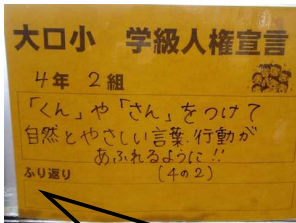 大口小 学級人権宣言
4年 2組
「くん」や「さん」をつけて
自然とやさしい言葉、行動が
あふれるように!!
ふり返り (4の2)